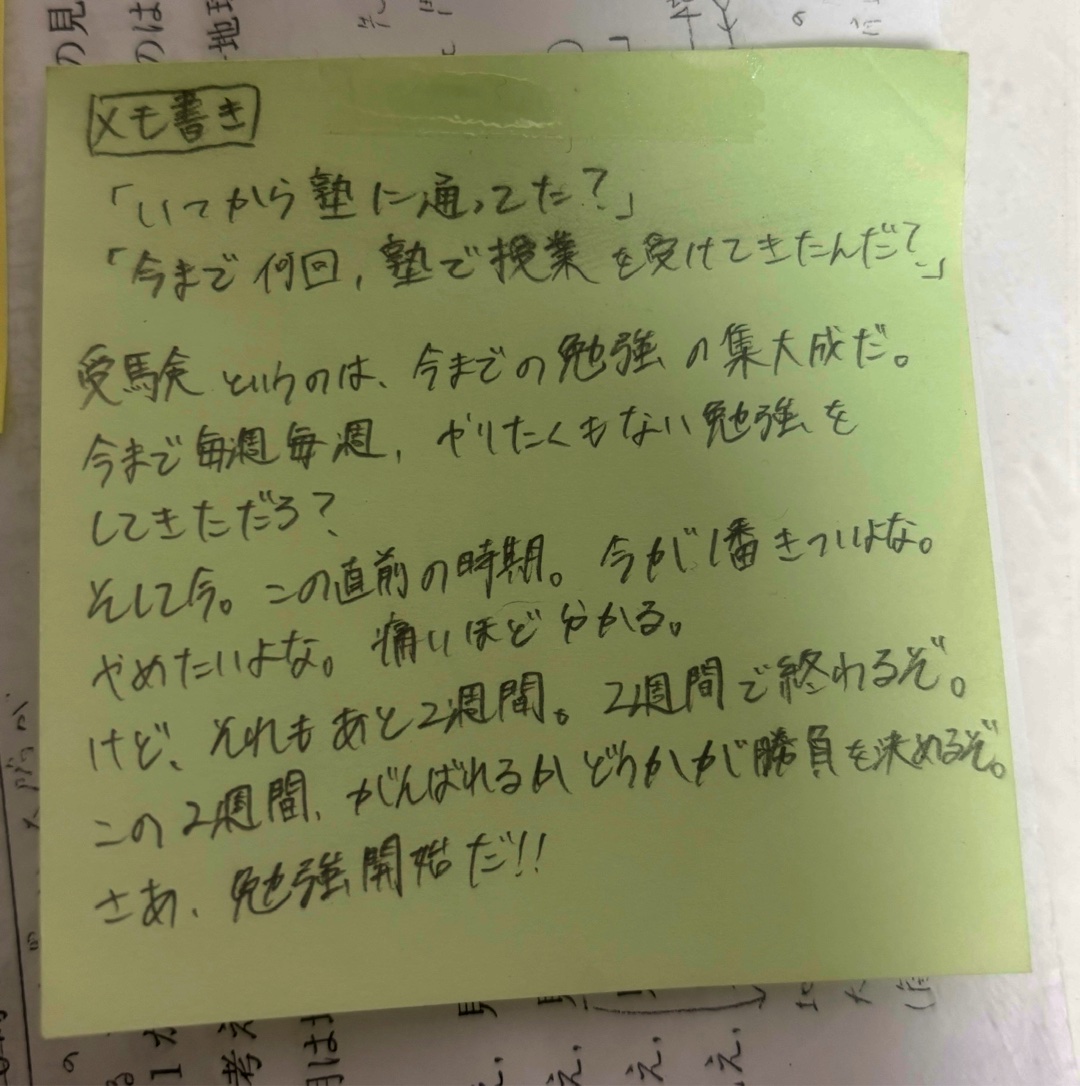 メモ書き
「いつから塾に通ってた?」
「今まで何回, 塾で授業を受けてきたんだ?」
受験というのは、今までの勉強の集大成だ。
今まで毎週毎週, やりたくもない勉強を
してきただろ?
そして今。この直前の時期。今が1番きついよな。
やめたいよな。痛いほど分かる。
けど、それもあと2週間。2週間で終われるぞ。
この2週間, がんばれるかどうかが勝負を決めるぞ。
さあ、勉強開始だ!!
の見
のは
地